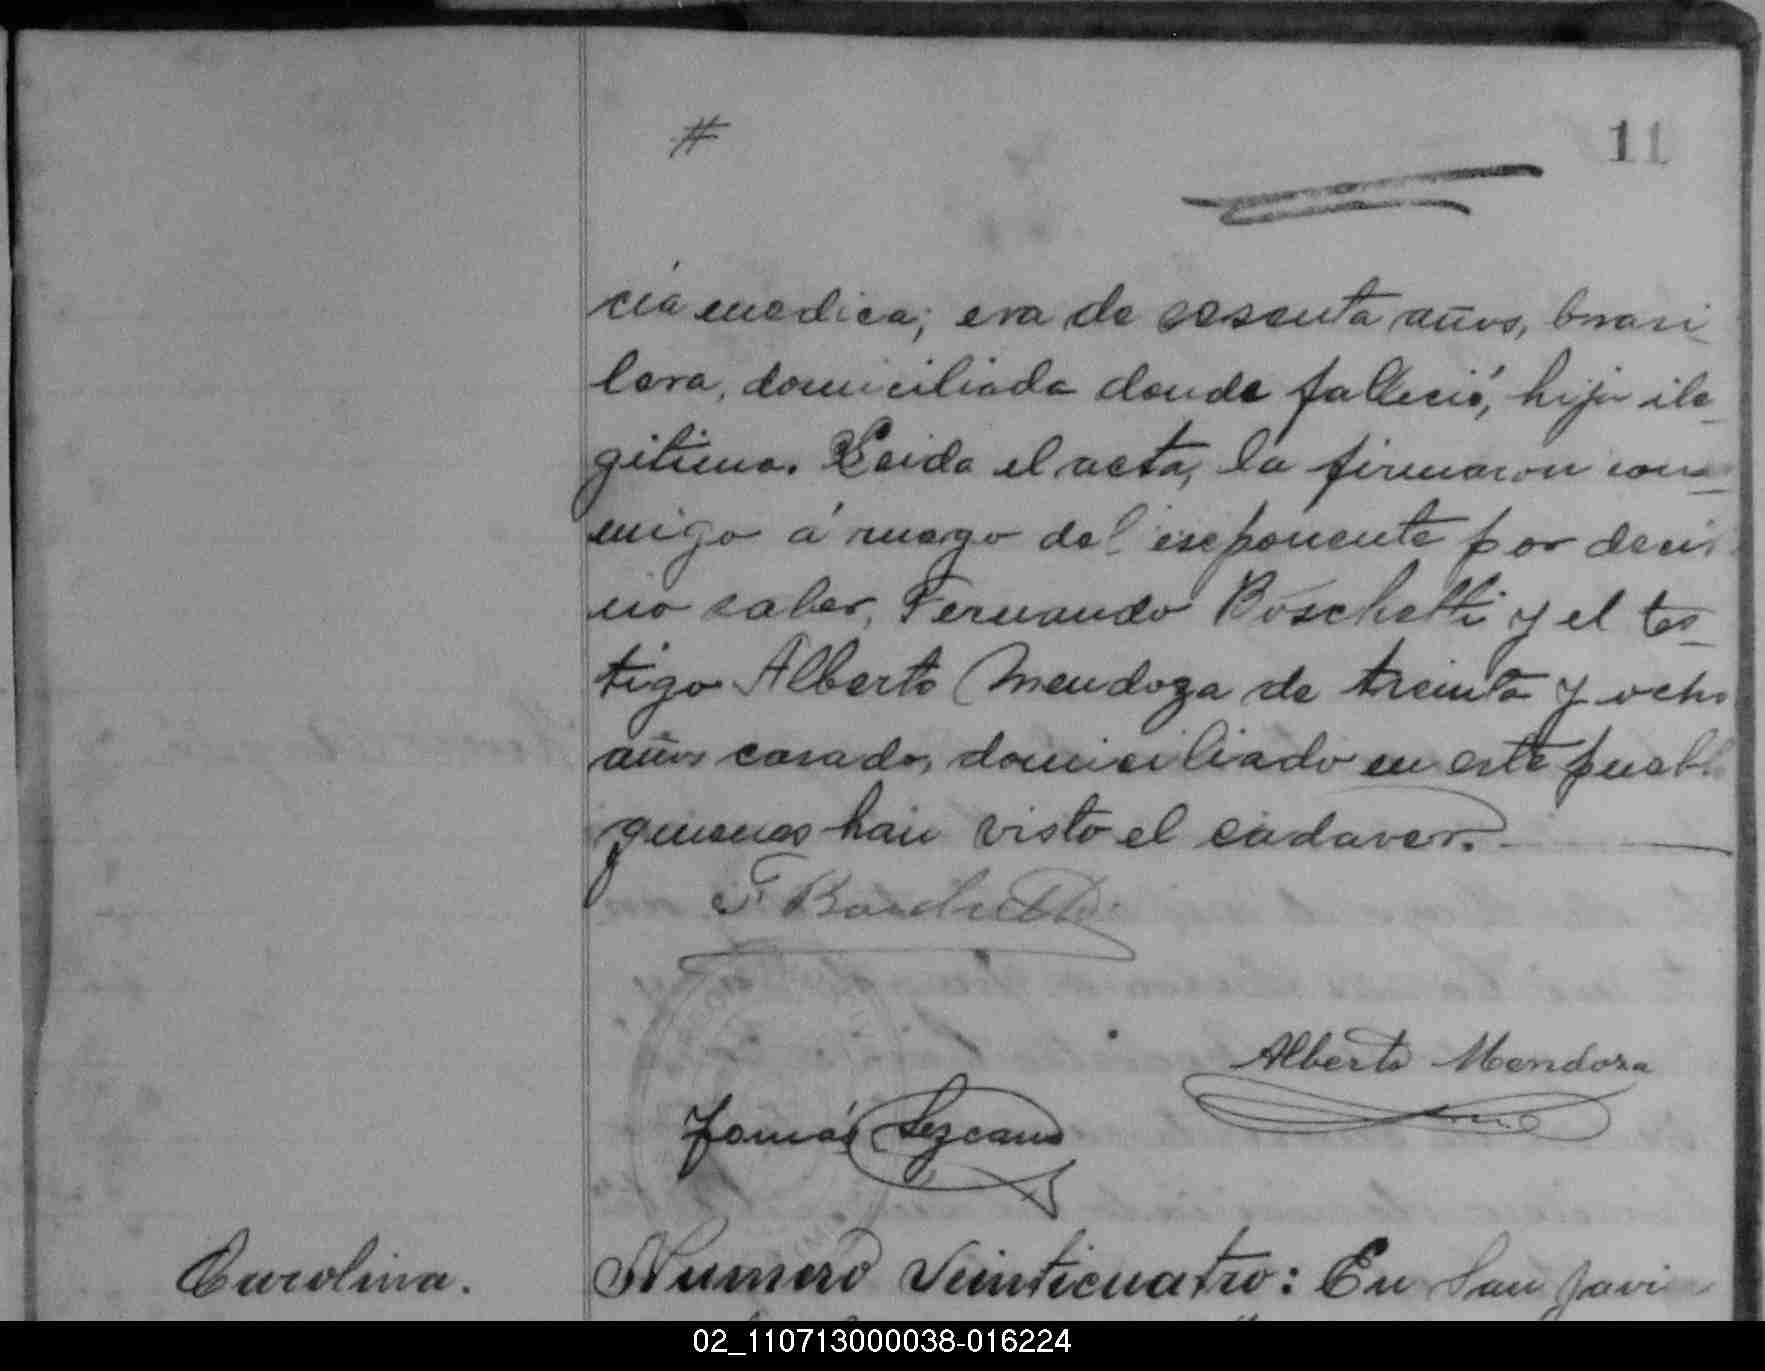 #
11
cia medica; era de sesenta años, brasi
lera, domiciliada donde falleció, hija ile-
gitima. Leida el acta, la firmaron con-
migo á ruego del exponente por decir
no saber, Fernando Boschetti y el tes-
tigo Alberto Mendoza de treinta y ocho
años casado, domiciliado en este pueblo
quienes han visto el cadaver.
F. Boschetti
Alberto Mendoza
Tomás Lezcano
Carolina.
Numero Veinticuatro: En San Javier
02_110713000038-016224